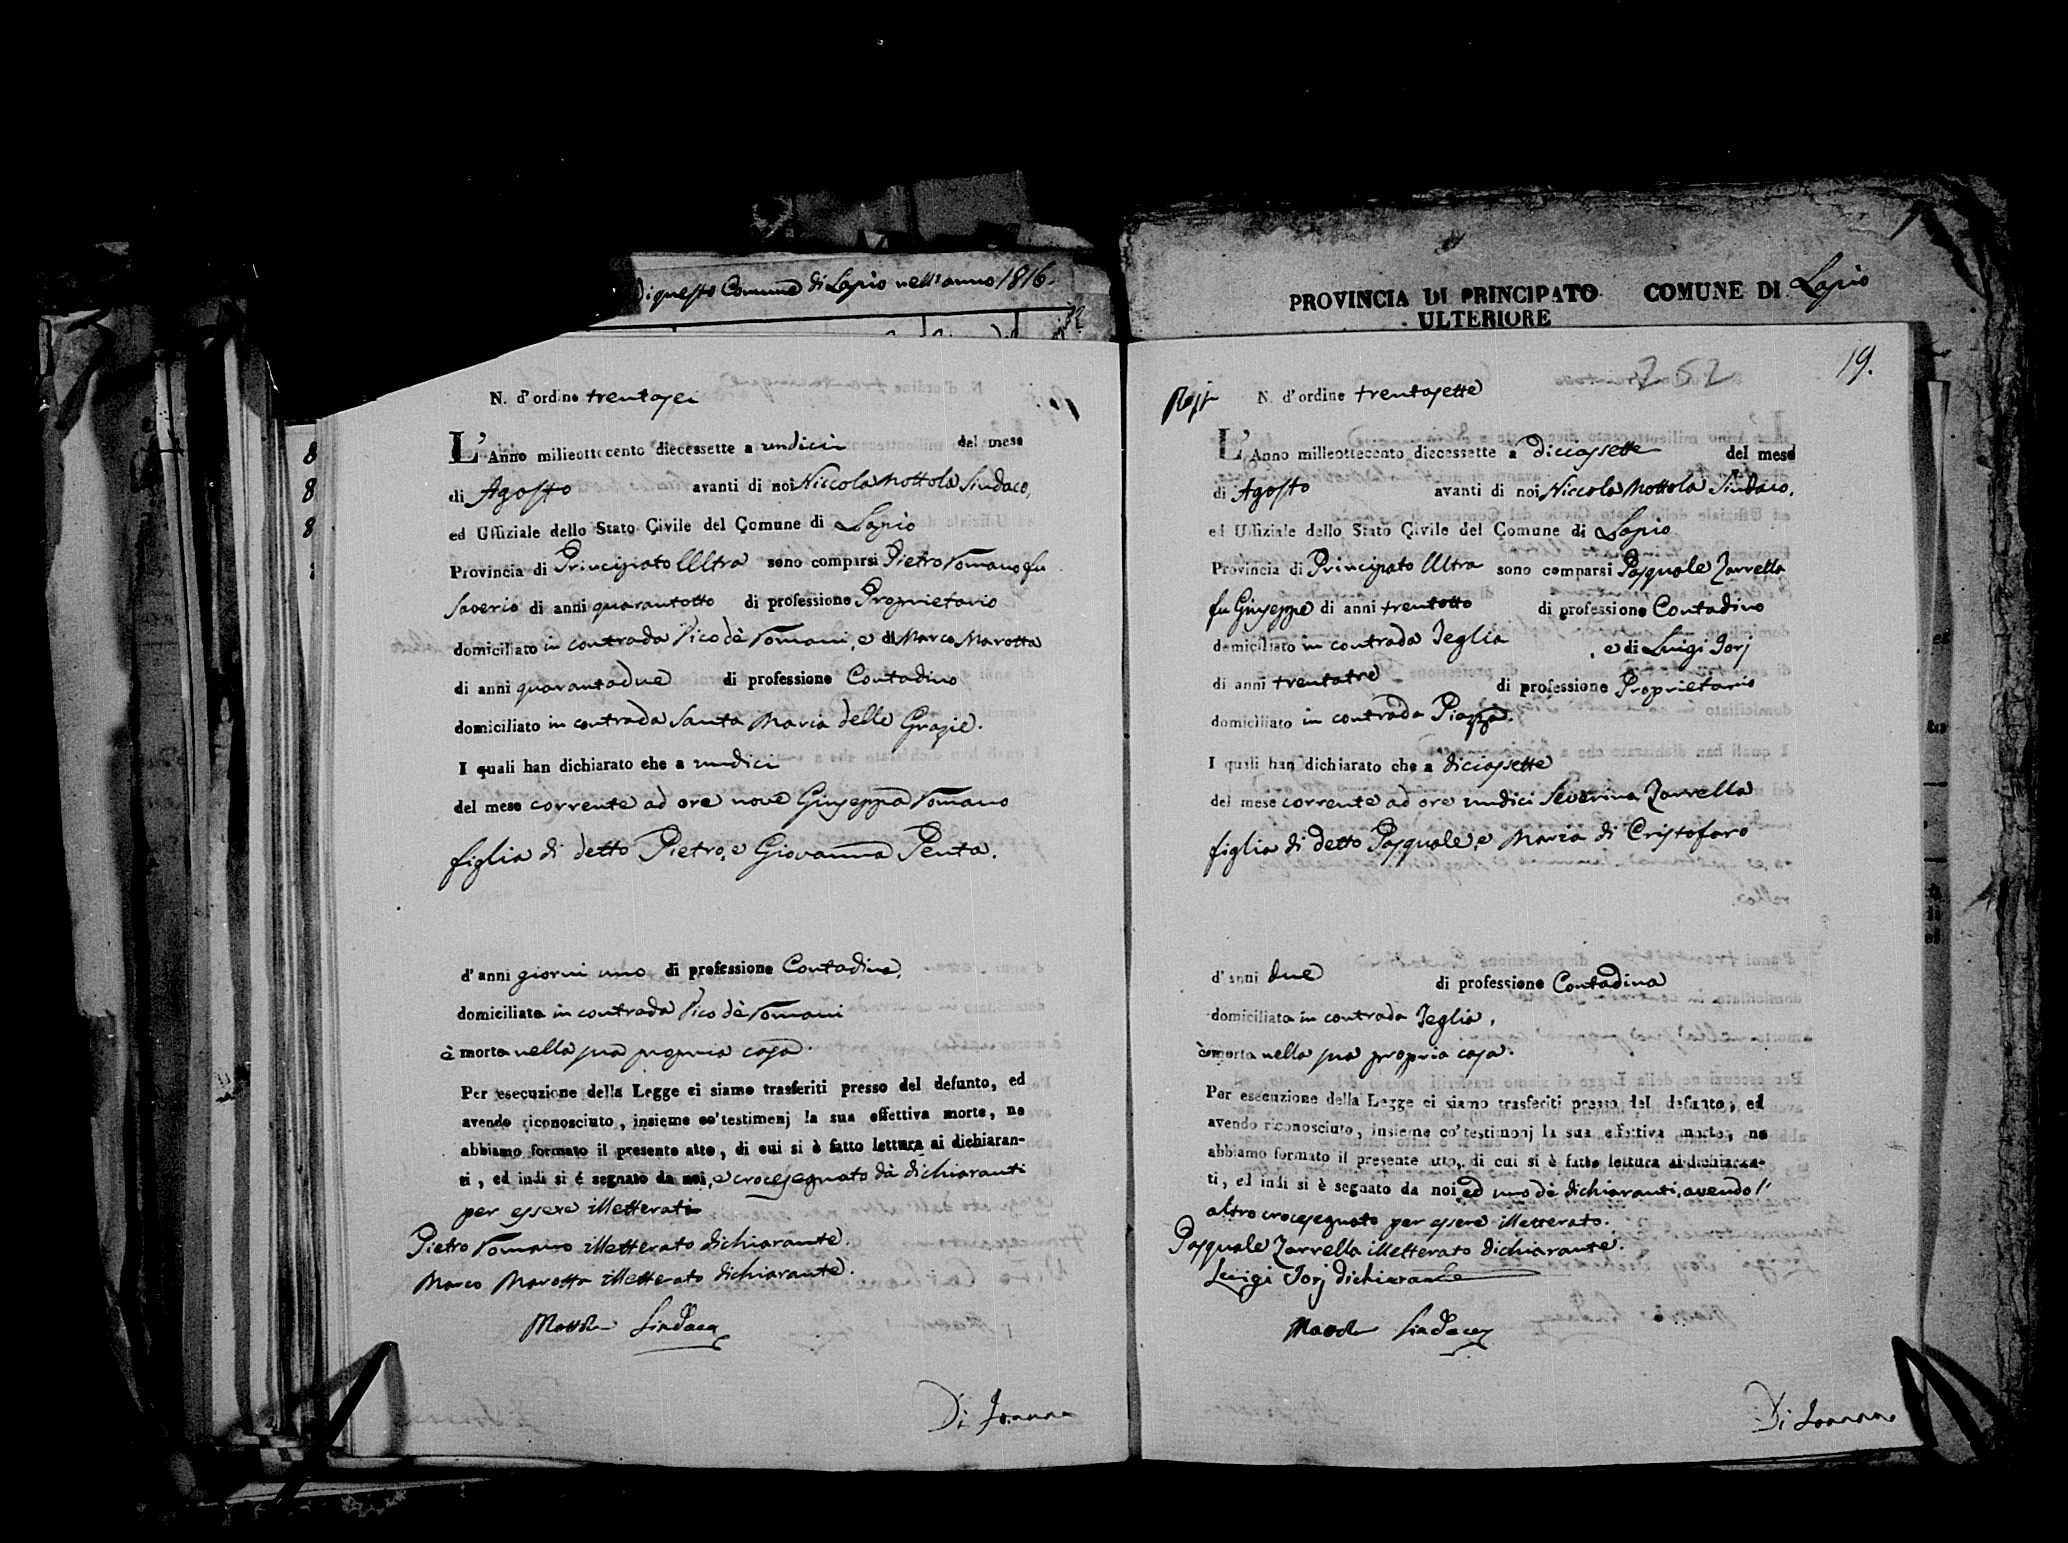 di questo Comune di Lapio nell'anno 1816.
PROVINCIA DI PRINCIPATO COMUNE DI Lapio
ULTERIORE
8
8
8
N. d'ordine trentasei
L'Anno milleottocento diecessette a undici del mese
di Agosto avanti di noi Niccola Mottola Sindaco,
ed Uffiziale dello Stato Civile del Comune di Lapio
Provincia di Principato Ultra sono comparsi Pietro Romano fu
Saverio di anni quarantotto di professione Proprietario
domiciliato in contrada Vico dè Romani, e di Marco Marotta
di anni quarantadue di professione Contadino
domiciliato in contrada Santa Maria delle Grazie.
I quali han dichiarato che a undici
del mese corrente ad ore nove Giuseppa Romano
figlia di detto Pietro, e Giovanna Penta.
d'anni giorni uno di professione Contadina,
domiciliata in contrada Vico dè Romani
è morta nella sua propria casa.
Per esecuzione della Legge ci siamo trasferiti presso del defunto, ed
avendo riconosciuto, insieme co'testimonj la sua effettiva morte, ne
abbiamo formato il presente atto, di cui si è fatto lettura ai dichiaran-
ti, ed indi si è segnato da noi, e crocesegnato dà dichiaranti
per essere illetterati
Pietro Romano illetterato dichiarante.
Marco Marotta illetterato dichiarante.
Mottola Sindaco
Di Ioanna
252
19.
N. d'ordine trentasette
L'Anno milleottocento diecessette a Diciassette del mese
di Agosto avanti di noi Niccola Mottola Sindaco,
ed Uffiziale dello Stato Civile del Comune di Lapio
Provincia di Principato Ultra sono comparsi Pasquale Zarrella
fu Giuseppe di anni trentotto di professione Contadino
domiciliato in contrada Teglia, e di Luigi Iorj
di anni trentatrè di professione Proprietario
domiciliato in contrada Piazza.
I quali han dichiarato che a diciassette
del mese corrente ad ore undici Severina Zarrella
figlia di detto Pasquale, e Maria di Cristofaro
d'anni due di professione Contadina
domiciliata in contrada Teglia,
è morta nella sua propria casa.
Per esecuzione della Legge ci siamo trasferiti presso del defunto, ed
avendo riconosciuto, insieme co'testimonj la sua effettiva morte, ne
abbiamo formato il presente atto, di cui si è fatto lettura ai dichiaran-
ti, ed indi si è segnato da noi, ed uno dè dichiaranti, avendo l'
altro crocesegnato per essere illetterato.
Pasquale Zarrella illetterato dichiarante.
Luigi Iorj dichiarante
Mottola Sindaco
Di Ioanna